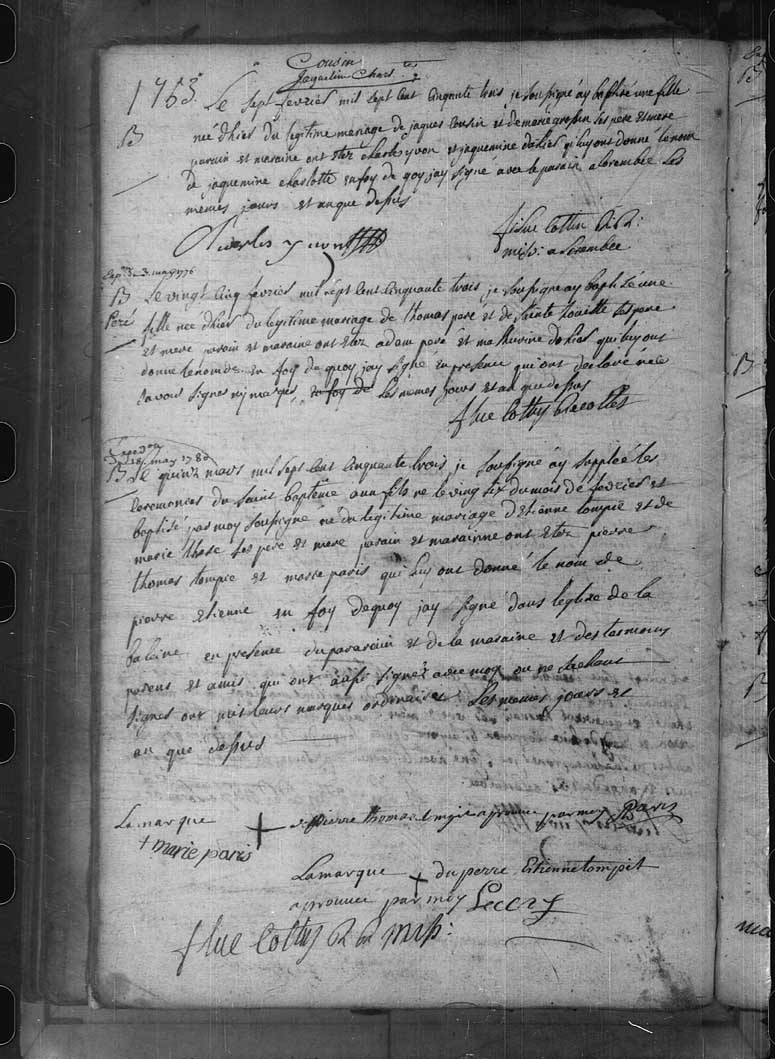 Cousin
Jaquelin Charl.te
1753.
Le sept fevrier mil sept cent cinquante trois je soussigné ay baptisé une fille
B née dhier du legitime mariage de jaques cousin et de marie grossin ses pere et mere
parain et maraine ont etez charle yvon et jaquemine deslies qui luy ont donné le nom
de jaquemine charlotte en foy de quoy jay signé avec le parain a Lorembec les
memes jours et an que desus
Charles yvon
f: luc Cottin R: R:
miss: a Lorembec
Exp. 3. may 1776
B Le vingt cinq fevrier mil sept cent cinquante trois je soussigné ay baptisé une
Peré fille née dhier du legitime mariage de thomas peré et de
et mere parain et maraine ont etez adam peré et mathurine deslies qui luy ont
donné le nom de en foy de quoy jay signé en presence qui ont declaré ne
savoir signer ny marquer en foy de les memes jours et an que desus
f luc Cottin Recollet
Expedon
18. may 1780
B Le quinz mars mil sept cent cinquante trois je soussigné ay supplée les
ceremonies du saint baptême a un fils né le ving six du mois de fevrier et
baptisé par moy soussigné né du legitime mariage d'Etienne tompic et de
marie ses pere et mere parain et marainne ont etez pierre
thomas tompic et marie paris qui luy ont donné le nom de
pierre etienne en foy de quoy jay signé dans l'eglise de la
baleine en presence du pararain et de la maraine et des temoins
parens et amis qui ont aussi signez avec moy ou ne sachans
signer ont mis leurs marques ordinaires les memes jours et
an que desus
La marque + de pierre thomas aprouvé par moy Paris
+ marie paris
La marque + du perre Etienne tompic
aprouvée par moy
f luc Cottin R R miss: